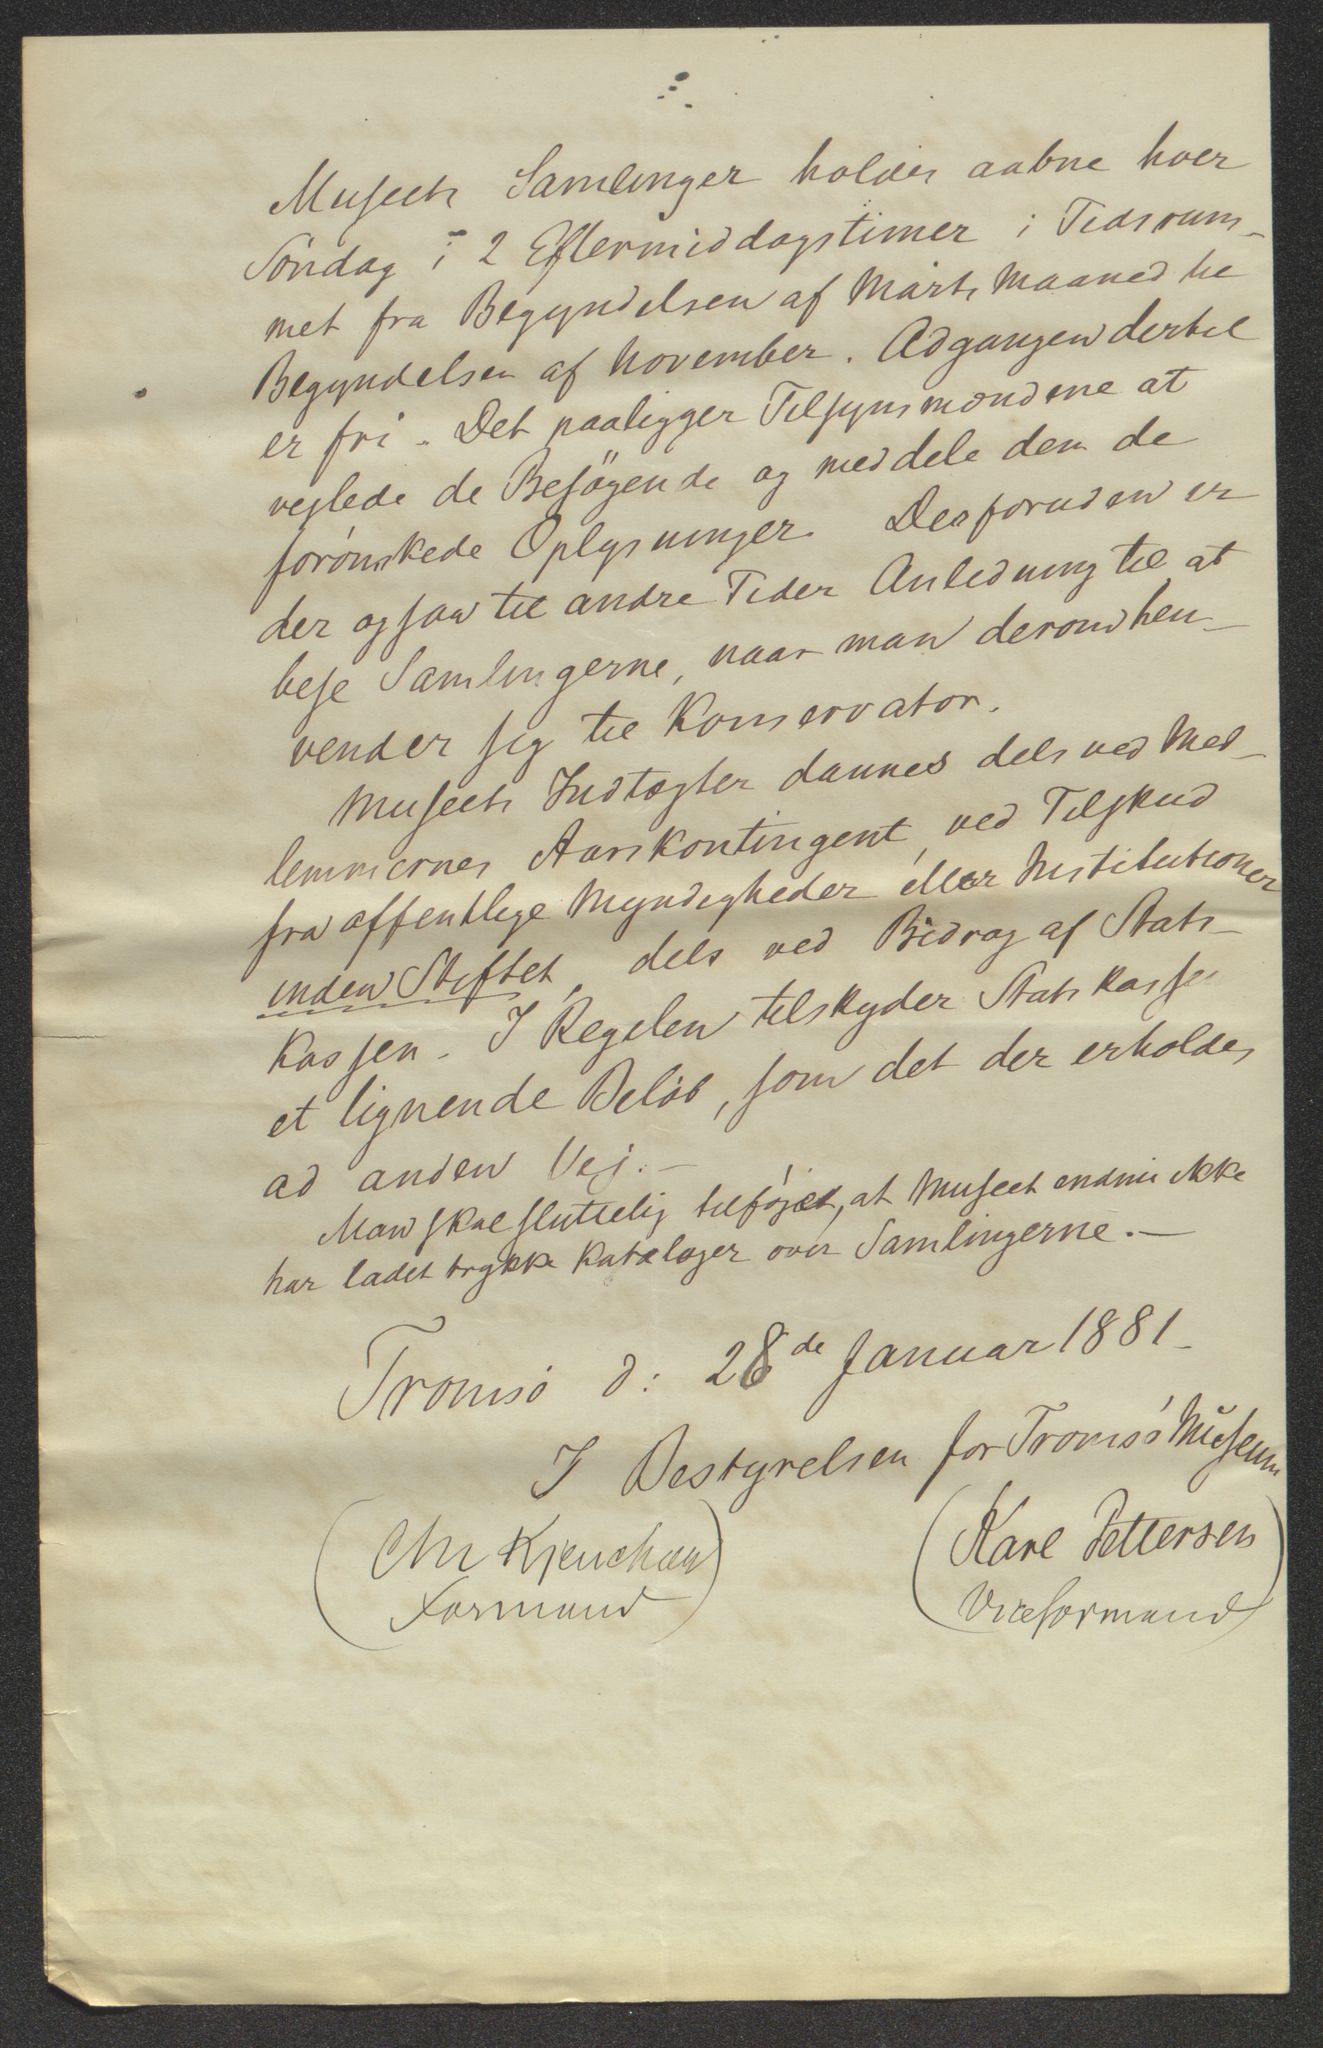 Museets Samlinger holdes aabne hver
Söndag i 2 Eftermiddagstimer i Tidsrum-
met fra Begyndelsen af Marts Maaned til
Begyndelsen af November. Adgangen dertil
er fri. Det paaligger Tilsynsmændene at
vejlede de Besögende og meddele dem de
forönskede Oplysninger. Desforuden er
der ogsaa til andre Tider Anledning til at
bese Samlingerne, naar man derom hen-
vender sig til Konservator.
Museets Indtægter dannes dels ved Med-
lemmernes Aarskontingent, ved Tilskud
fra offentlige Myndigheder eller Institutioner
inden Stiftet, dels ved Bidrag af Stats-
kassen. I Regelen tilskyder Statskassen
et lignende Belöb, som det der erholdes
ad anden Vej.-
Man skal sluttelig tilföjet, at Museet endnu ikke
har ladet trykke Kataloger over Samlingerne.-
Tromsö d: 28de Januar 1881-
I Bestyrelsen for Tromsö Museum
(Chr Kjeuchau) (Karl Pettersen)
Formand Viceformand